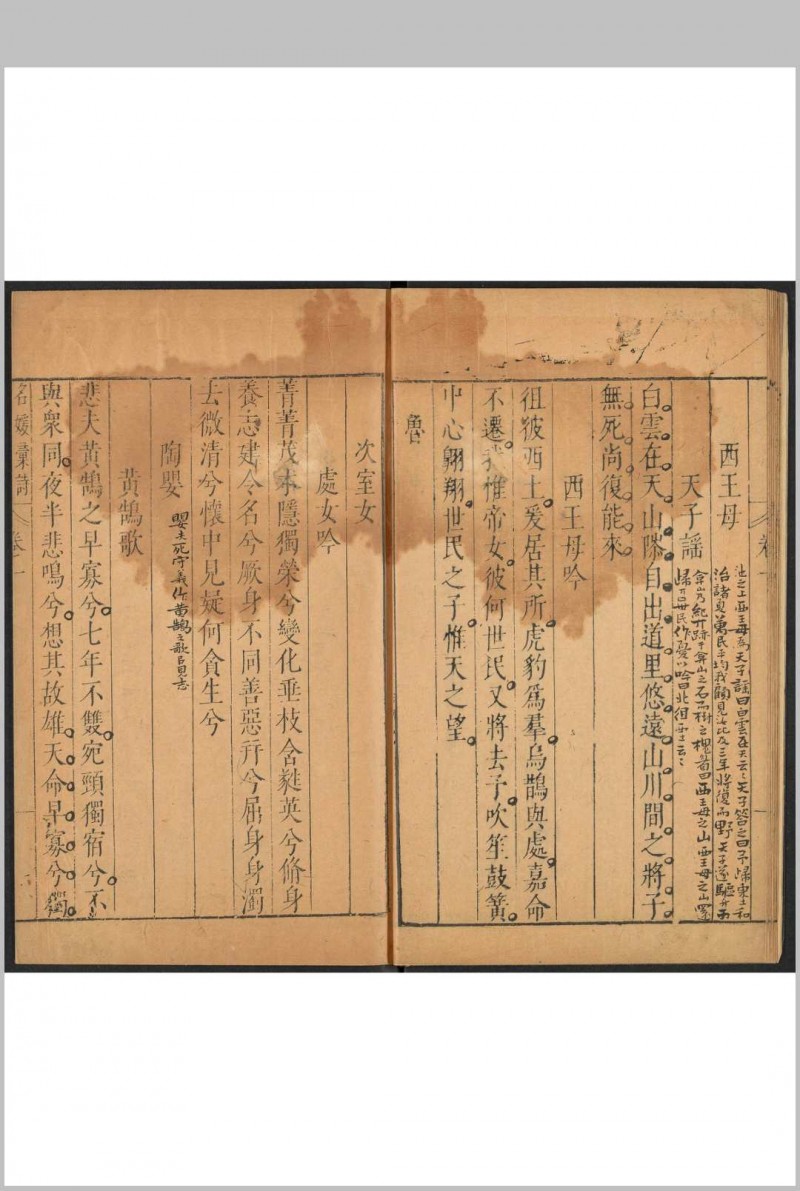 卷一
西王母
池之上西王母為天子謠曰白雲在天云云天子答之曰予歸東土和
治諸夏萬民平均我顧見汝比及三年將復而野天子遂驅升而
弇山乃紀丌跡于弇山之石而樹之槐眉曰西王母之山西王母之山還
歸丌世民作憂以吟曰北徂西土云云
天子謠
白雲在天山隊自出道里悠遠山川間之將子
無死尚復能來
西王母吟
徂彼西土爰居其所虎豹為羣烏鵲與處嘉命
不遷我惟帝女彼何世民又將去子吹笙鼓簧
中心翱翔世民之子惟天之望
魯
次室女
處女吟
菁菁茂木隱獨榮兮變化垂枝含蕤英兮脩身
養志建令名兮厥身不同善惡并兮屈身身濁
去微清兮懷中見疑何貪生兮
陶嬰
嬰夫死守義作黃鵠之歌以見志
黃鵠歌
悲夫黃鵠之早寡兮七年不雙宛頸獨宿兮不
與衆同夜半悲鳴兮想其故雄天命早寡兮獨
名媛彙詩 卷一